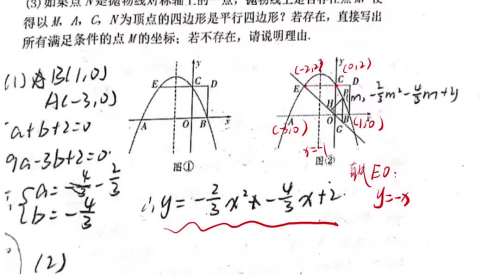 (3)如果点N是抛物线对称轴上的一点,抛物线上是否存在点M,使
得以M、A、C、N为顶点的四边形是平行四边形?若存在,直接写出
所有满足条件的点M的坐标;若不存在,请说明理由.
(1) B(1,0)
A(-3,0)
a+b+2=0
9a-3b+2=0
a=-2/3
b=-4/3
∴y=-2/3x²-4/3x+2
(2)
y
E
C
D
A
O
B
x
图①
(-2,2)
(0,2)
y
E
C
D
P
m, -2/3m²-4/3m+2
H
A
O
G
B
x
(-3,0)
(1,0)
x=-1
图②
EO:
y=-x